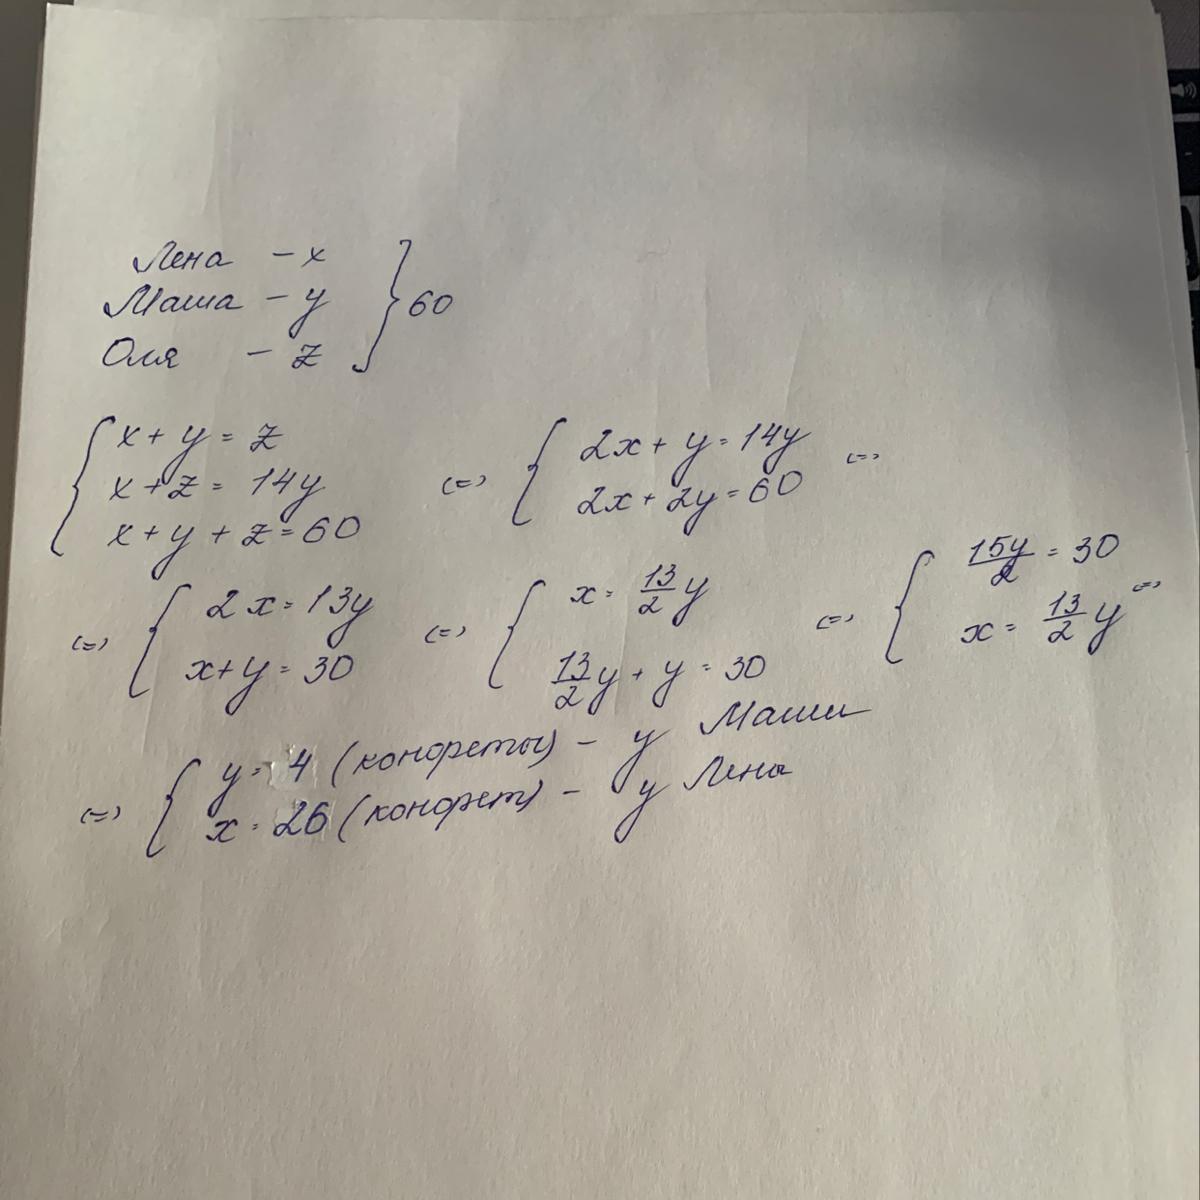 Лена – x
Маша – y
Оля – z
} 60
{ x + y = z
x + z = 14y
x + y + z = 60
(=) { 2x + y = 14y
2x + 2y = 60
(=)
(=) { 2x = 13y
x + y = 30
(=) { x = 13/2 y
13/2 y + y = 30
(=) { 15y/2 = 30
x = 13/2 y
(=)
(=) { y = 4 (конфеты) – у Маши
x = 26 (конфет) – у Лены